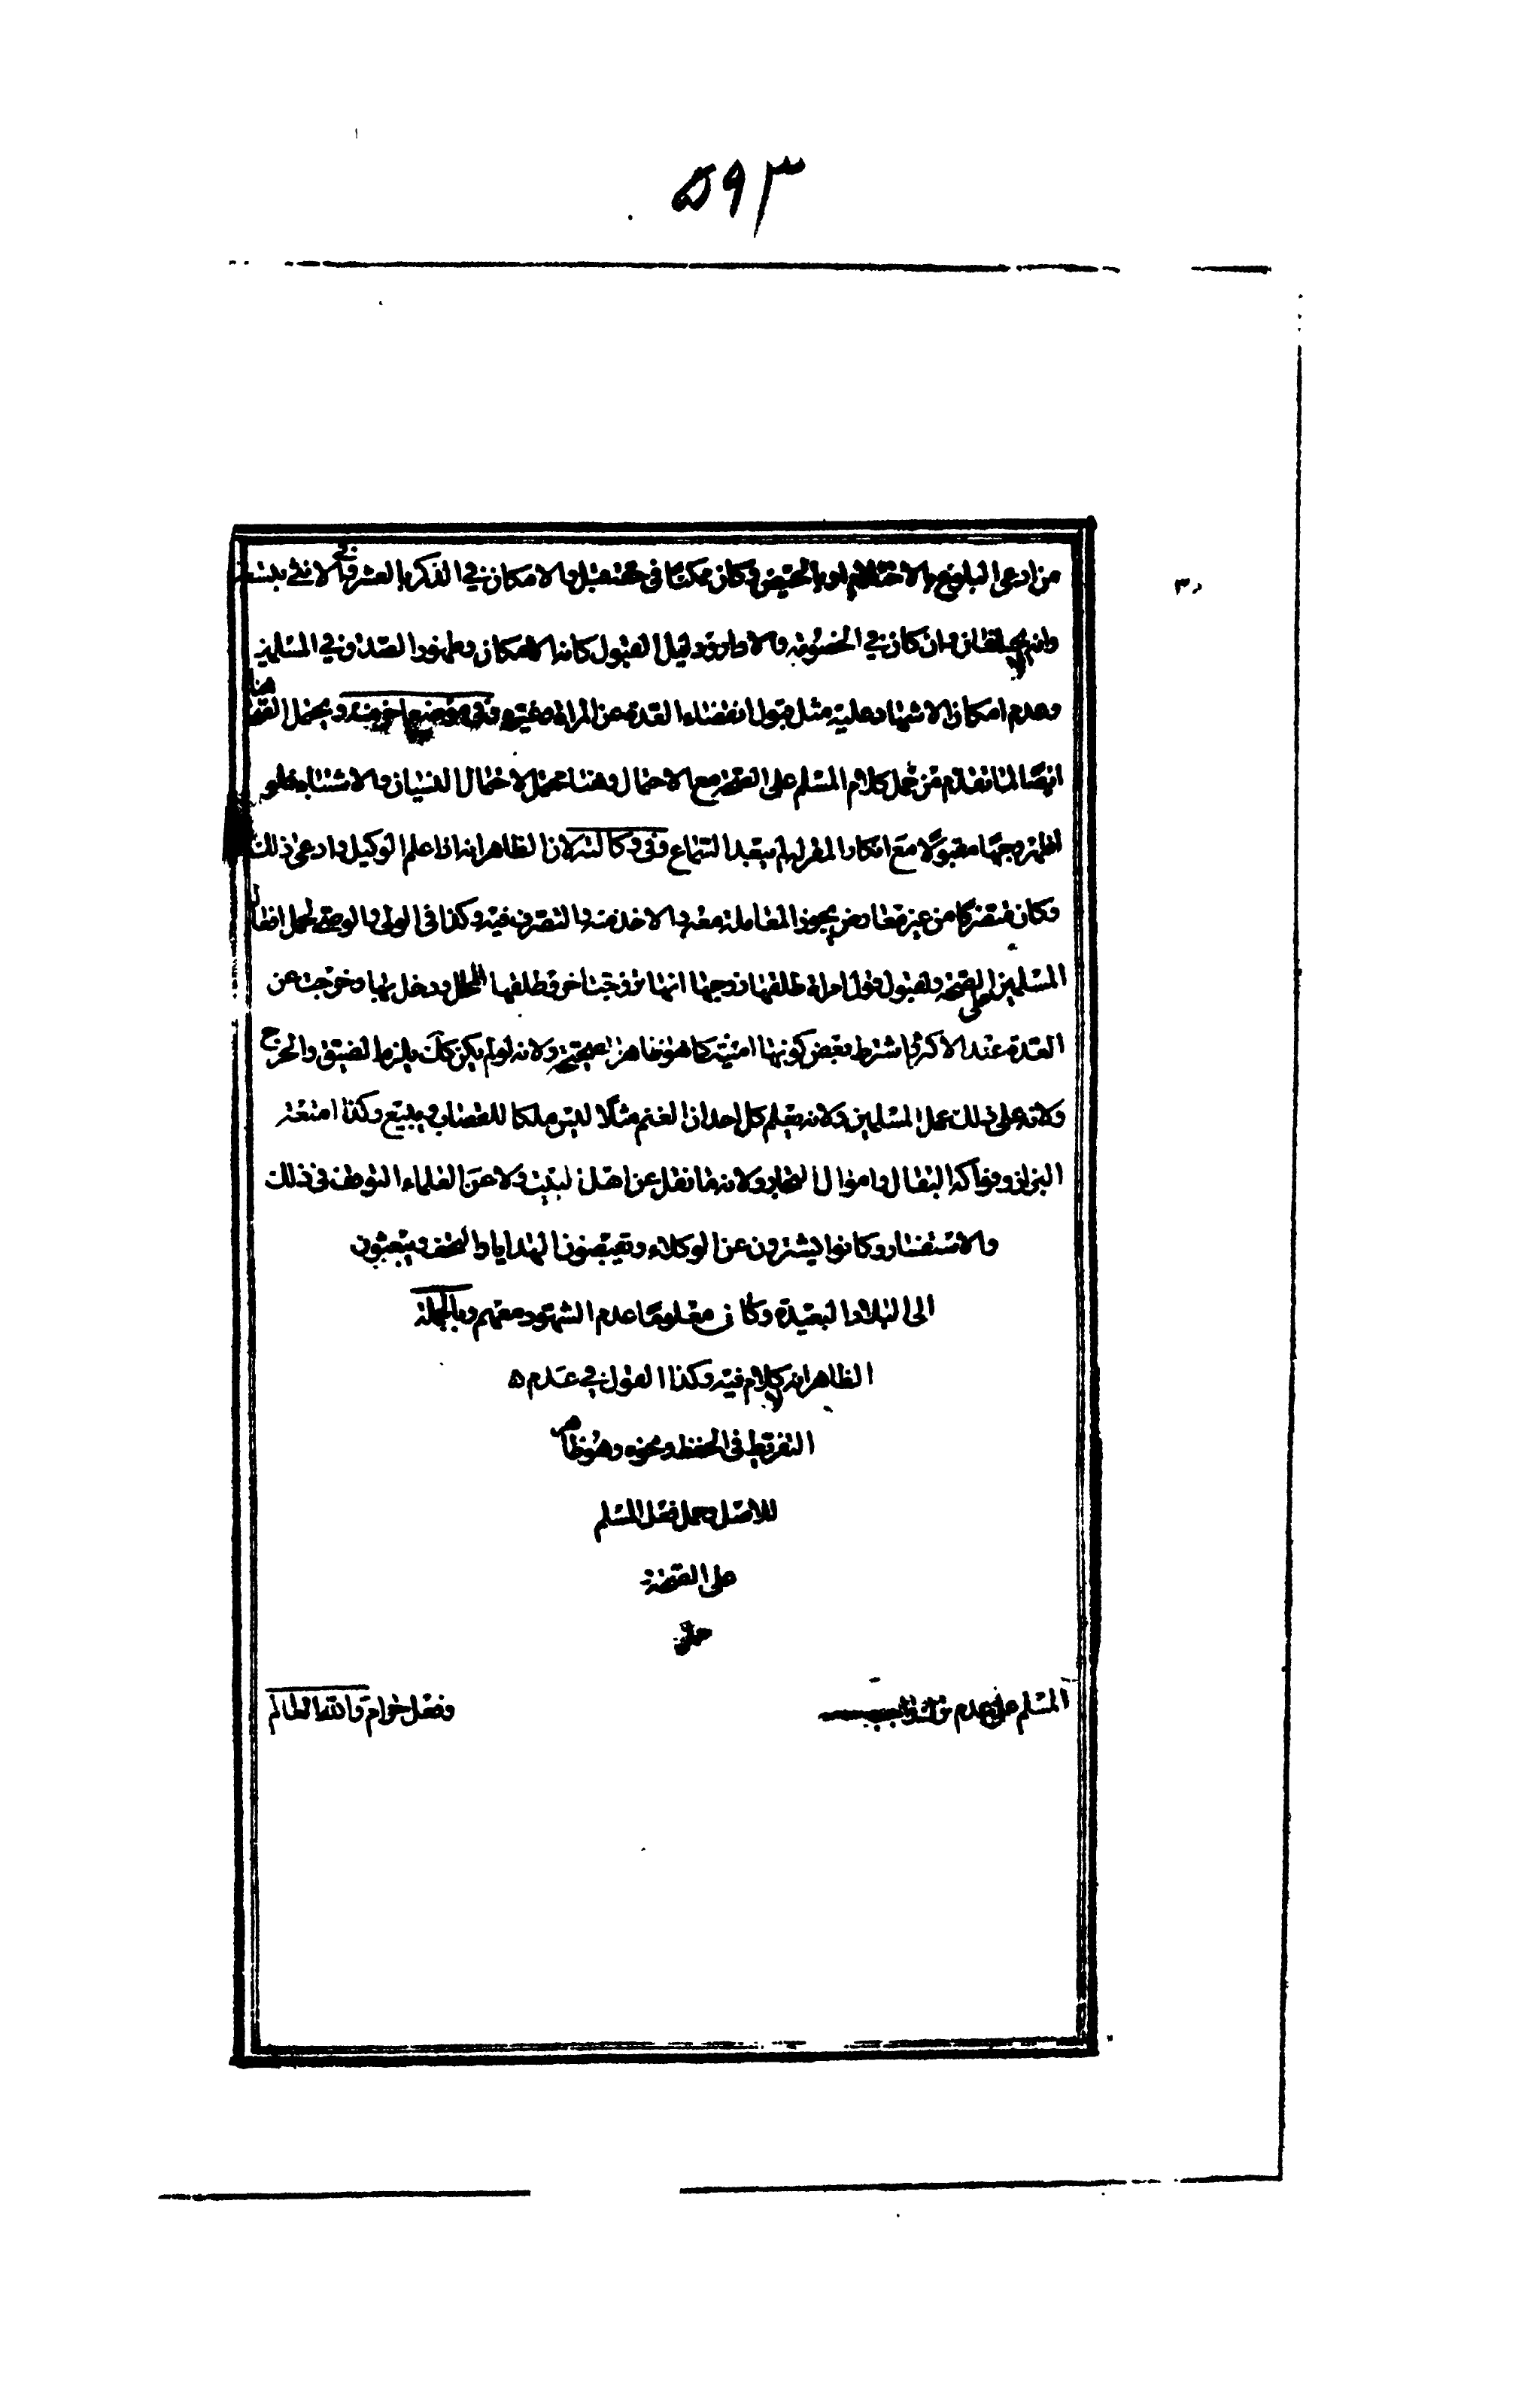 ۵۹۳
من ادعى البلوغ بالاحتلام او بالحيض وكان ممكنا فى حقه قبل والامكان في الذكر بالعشر وفي الانثى بتسع
وانه لا يحلفان وان كان في الخصومة والادوار ودليل القبول كانه الامكان وظهور الصدق في المسلمين
وعدم امكان الاشهاد عليه مثل قبول انقضاء العدة عن المراة وغيره وفى موضع اخر منه ويحتمل القضا هنا
ايضا لما تقدم من حمل كلام المسلم على الصحة مع الاحتمال وهنا محتمل لاحتمال النسيان والاشتباه فلو
اظهر وجها مقبولا مع انكار المقر له لم يبعد السماع وفى وكالته لان الظاهر انه اذا علم الوكيل وادعى ذلك
وكان متصرفا من غير معارض يجوز المعاملة معه والاخذ منه والتصرف فيه وكذا فى الولى والوصى لحمل افعال
المسلمين على الصحة ولقبول قول امراة طلقها زوجها انها تزوجت اخر وطلقها المحلل ودخل بها وخرجت عن
العدة عند الاكثر واشترط بعض كونها امينة كما هو ظاهر صحيحة ولانه لو لم يكن كك يلزم الضيق والحرج
ولانه على ذلك عمل المسلمين ولانه يعلم كل احد ان الغنم مثلا ليس ملكا للقصاب ويبيع وكذا امتعة
البزاز وفواكه البقال واموال التجار ولانه ما نقل عن اهل البيت ولا عن العلماء التوقف فى ذلك
والاستفسار وكانوا يشترون عن الوكلاء ويقبضون الهدايا والتحف ويبعثون
الى البلاد البعيدة وكان معلوما عدم الشهود معهم وبالجملة
الظاهر انه لا كلام فيه وكذا القول في عدم
التفريط فى الحفظ ونحوه وهو ظاهر
للاصل وحمل فعل المسلم
على الصحة
المسلم على عدم
وفعل حرام والله العالم